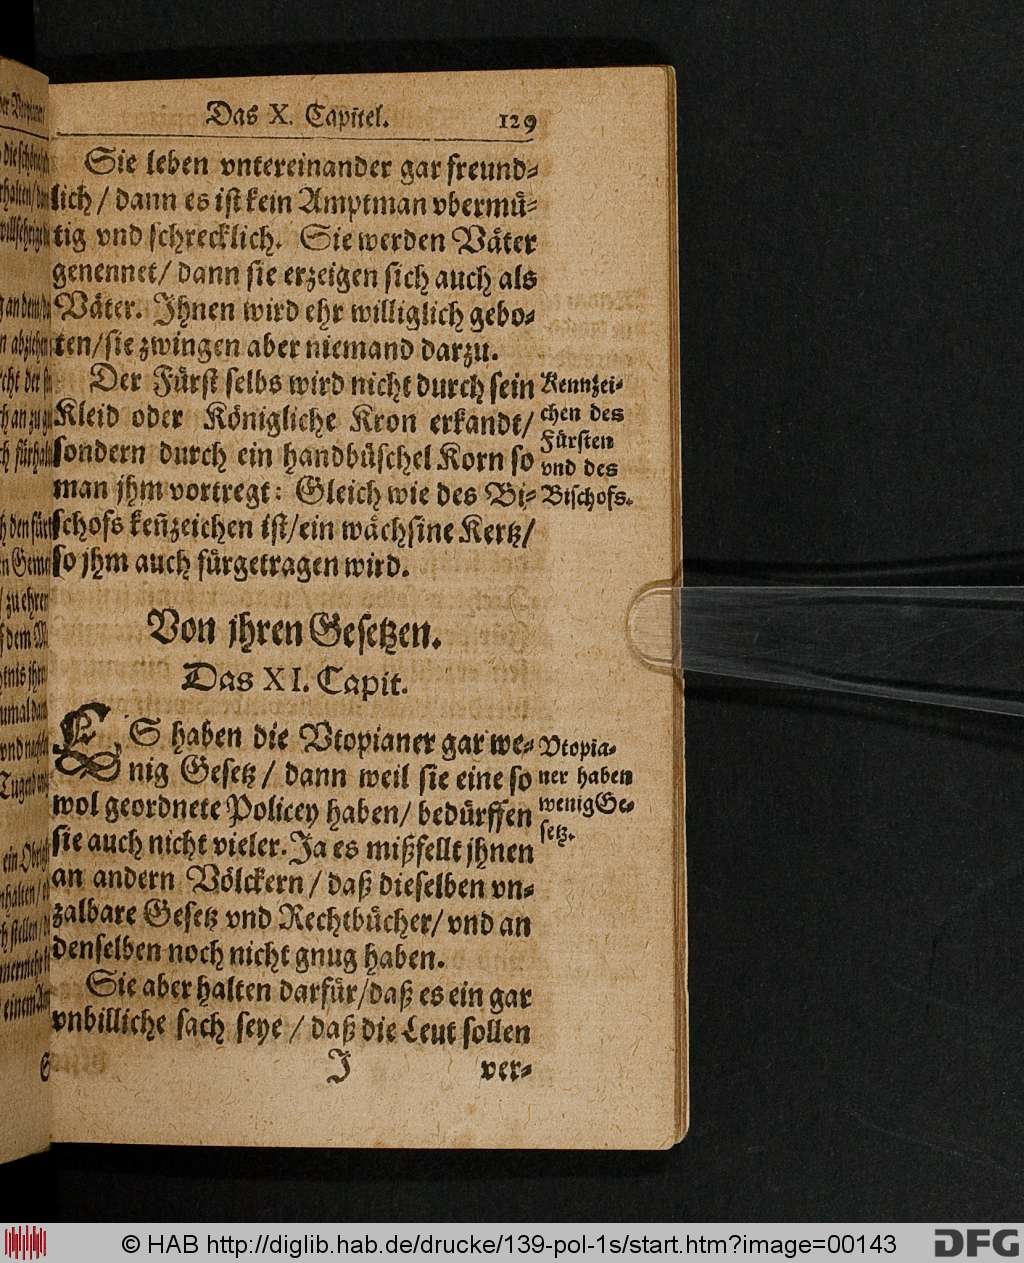 Das X. Capitel. 129
Sie leben vntereinander gar freund⸗
lich / dann es ist kein Amptman vbermuͤ⸗
tig vnd schrecklich. Sie werden Vaͤter
genennet / dann sie erzeigen sich auch als
Vaͤter. Jhnen wird ehr williglich gebo⸗
ten / sie zwingen aber niemand darzu.
Der Fuͤrst selbs wird nicht durch sein
Kleid oder Koͤnigliche Kron erkandt /
sondern durch ein handbuͤschel Korn so
man jhm vortregt: Gleich wie des Bi⸗
schofs keñzeichen ist / ein waͤchsine Kertz /
so jhm auch fuͤrgetragen wird.
Kennzei⸗
chen des
Fuͤrsten
vnd des
Bischofs.
Von jhren Gesetzen.
Das XI. Capit.
ES haben die Vtopianer gar we⸗
nig Gesetz / dann weil sie eine so
wol geordnete Policey haben / beduͤrffen
sie auch nicht vieler. Ja es mißfellt jhnen
an andern Voͤlckern / daß dieselben vn⸗
zalbare Gesetz vnd Rechtbuͤcher / vnd an
denselben noch nicht gnug haben.
Vtopia⸗
ner haben
wenig Ge⸗
setz.
Sie aber halten darfuͤr / daß es ein gar
vnbilliche sach seye / daß die Leut sollen
J ver⸗
© HAB http://diglib.hab.de/drucke/139-pol-1s/start.htm?image=00143
DFG